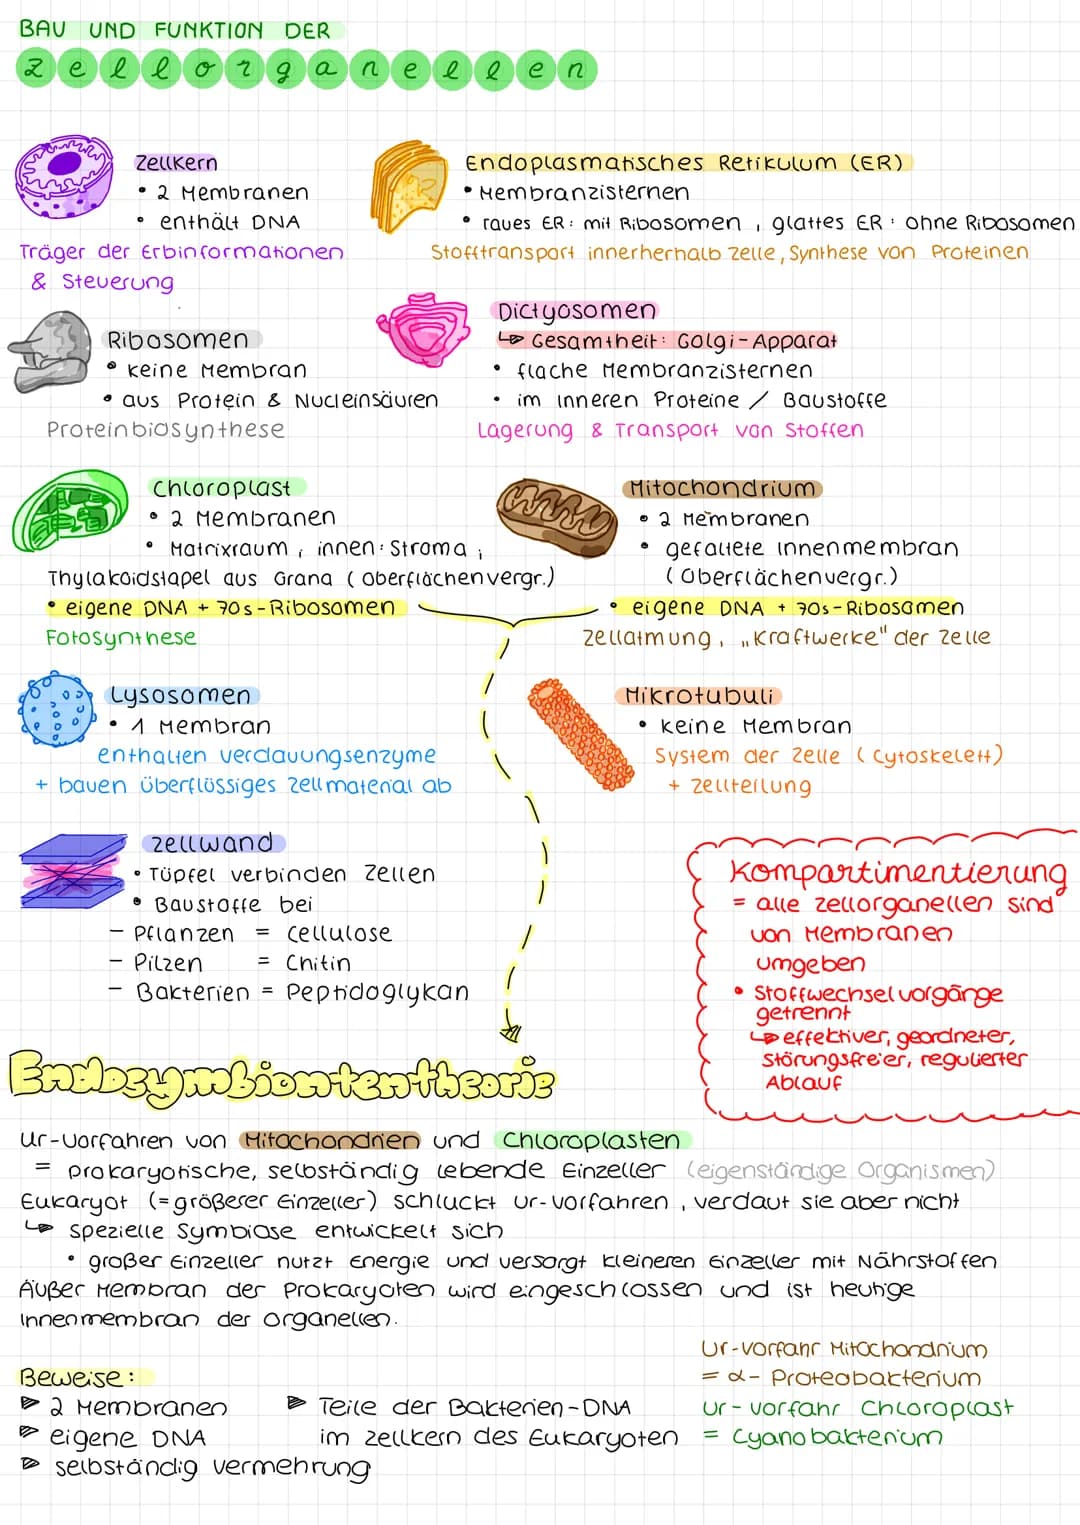 BAU UND FUNKTION DER
Zellorganellen
Zellkern
• 2 Membranen
• enthält DNA
Träger der Erbinformationen
& Steuerung
Endoplasmatisches Retikulum (ER)
• Membranzisternen
• raues ER: mit Ribosomen, glattes ER: ohne Ribosomen
Stofftransport innerherhalb Zelle, Synthese von Proteinen
Ribosomen
• keine Membran
• aus Protein & Nucleinsäuren
Proteinbiosynthese
Dictyosomen
↳ Gesamtheit: Golgi-Apparat
• flache Membranzisternen
• im Inneren Proteine / Baustoffe
Lagerung & Transport von Stoffen
Chloroplast
• 2 Membranen
• Matrixraum, innen: Stroma,
Thylakoidstapel aus Grana (Oberflächenvergr.)
• eigene DNA + 70s-Ribosomen
Fotosynthese
Mitochondrium
• 2 Membranen
• gefaltete Innenmembran
(Oberflächenvergr.)
• eigene DNA + 70s-Ribosomen
Zellatmung, „Kraftwerke" der Zelle
Lysosomen
• 1 Membran
enthalten Verdauungsenzyme
+ bauen überflüssiges Zellmaterial ab
Mikrotubuli
• keine Membran
System der Zelle (Cytoskelett)
+ Zellteilung
Zellwand
• Tüpfel verbinden Zellen
• Baustoffe bei
- Pflanzen = Cellulose
- Pilzen = Chitin
- Bakterien = Peptidoglykan
Kompartimentierung
= alle Zellorganellen sind
von Membranen
umgeben
• Stoffwechselvorgänge
getrennt
↳ effektiver, geordneter,
störungsfreier, regulierter
Ablauf
Endosymbiontentheorie
Ur-Vorfahren von Mitochondrien und Chloroplasten
= prokaryotische, selbständig lebende Einzeller (eigenständige Organismen)
Eukaryot (=größerer Einzeller) schluckt Ur-Vorfahren, verdaut sie aber nicht
↳ spezielle Symbiose entwickelt sich
• großer Einzeller nutzt Energie und versorgt kleineren Einzeller mit Nährstoffen
Äußer Membran der Prokaryoten wird eingeschlossen und ist heutige
Innenmembran der Organellen.
Beweise:
▷ 2 Membranen
▷ eigene DNA
▷ selbständig Vermehrung
▷ Teile der Bakterien-DNA
im Zellkern des Eukaryoten
Ur-Vorfahr Mitochondrium
= α-Proteobakterium
Ur-Vorfahr Chloroplast
= Cyanobakterium